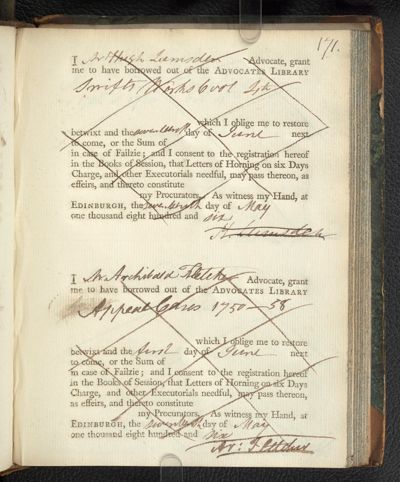 171.
I Mr Hugh Lumsden Advocate, grant
me to have borrowed out of the ADVOCATES LIBRARY
Swifts Works 4to
which I oblige me to restore
betwixt and the seventeenth day of June next
to come, or the Sum of
in case of Failzie; and I consent to the registration hereof
in the Books of Session, that Letters of Horning on six Days
Charge, and other Executorials needful, may pass thereon, as
effeirs, and thereto constitute
my Procurators. As witness my Hand, at
EDINBURGH, the seventeenth day of May
one thousand eight hundred and six
H. Lumsden
I Mr Archibald Fletcher Advocate, grant
me to have borrowed out of the ADVOCATES LIBRARY
Appeal Cases 1750-58
which I oblige me to restore
betwixt and the first day of June next
to come, or the Sum of
in case of Failzie; and I consent to the registration hereof
in the Books of Session, that Letters of Horning on six Days
Charge, and other Executorials needful, may pass thereon,
as effeirs, and thereto constitute
my Procurators. As witness my Hand, at
EDINBURGH, the seventeenth day of May
one thousand eight hundred and six
Ar: Fletcher